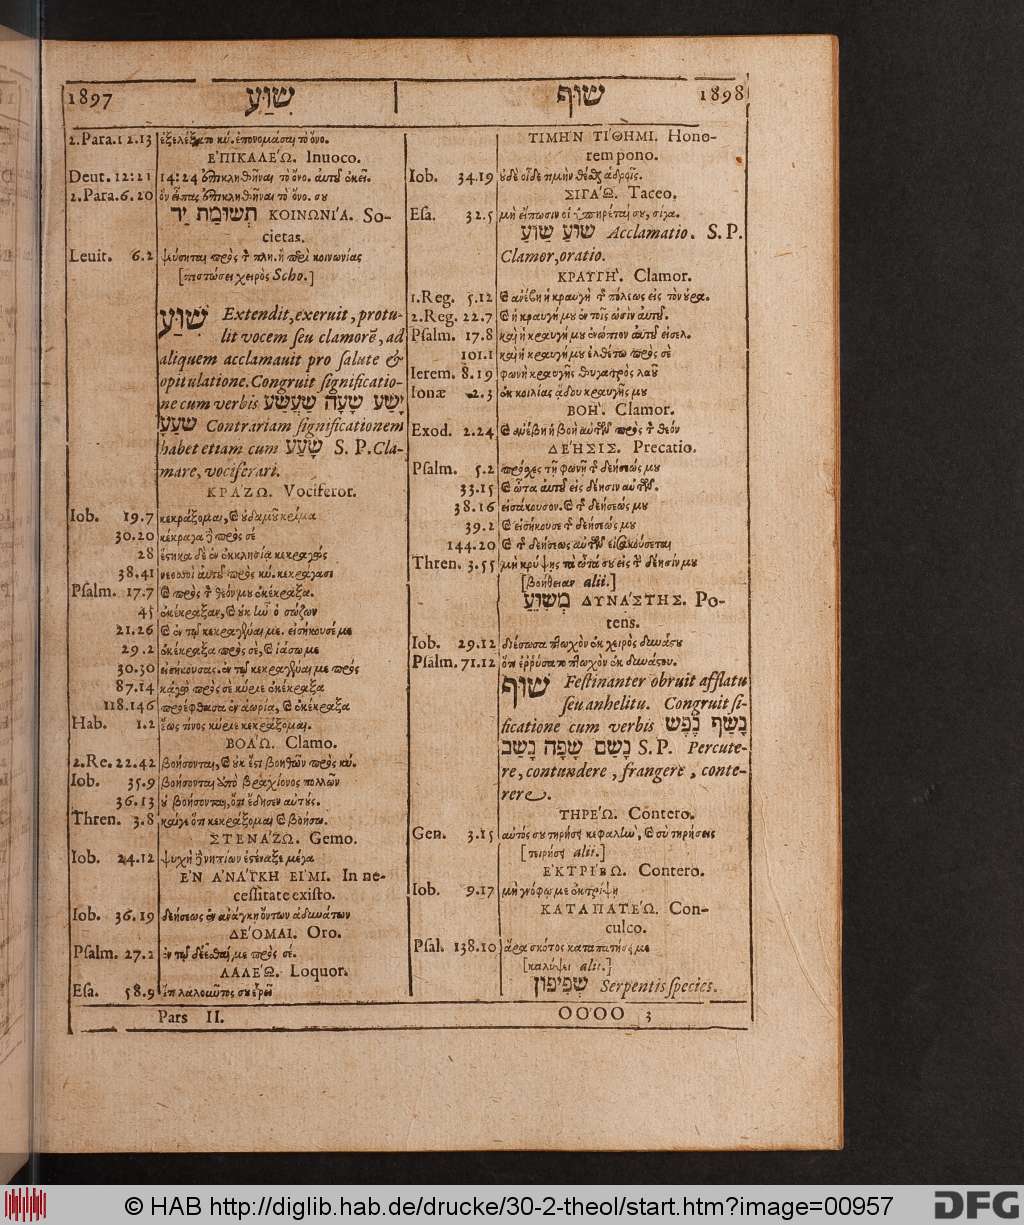 1897 שִׁוַּע
שׁוּף 1898
2.Para.12.13 ἐξελέξατο κύ. ἐπονομάσαι τὸ ὄνο.
ἘΠΙΚΑΛΕΏ. Inuoco.
Deut. 12:21 14:24 ἐπικληθῆναι τὸ ὄνο. αὐτοῦ ἐκεῖ.
2.Para.6.20 ὃν εἶπας ἐπικληθῆναι τὸ ὄνο. σου
תְּשׂוּמַת יָד ΚΟΙΝΩΝΙΆ. So-
cietas.
Leuit. 6.2 ψεύσηται πρὸς τ πλη. ἢ περὶ κοινωνίας
[πιστώσει χειρὸς Scho.]
שִׁוַּע Extendit, exeruit, protu-
lit vocem seu clamorē, ad
aliquem acclamauit pro salute &
opitulatione. Congruit significatio-
ne cum verbis יָשַׁע שָׁעָה שַׁעֲשַׁע
שָׁעַע Contrariam significationem
habet etiam cum שָׁעַע S. P. Cla-
mare, vociferari.
ΚΡΆΖΩ. Vociferor.
Iob. 19.7 κεκράξομαι, καὶ οὐδαμοῦ κρίμα
30.20 κέκραγα δὲ πρὸς σέ
28 ἕστηκα δὲ ἐν ἐκκλησίᾳ κεκραγώς
38.41 νεοσσοὶ αὐτοῦ πρὸς κύ. κεκράγασι
Psalm. 17.7 καὶ πρὸς τ θεόν μου ἐκέκραξα.
45 ἐκέκραξαν, καὶ οὐκ ἦν ὁ σώζων
21.26 καὶ ἐν τῷ κεκραγέναι με. εἰσήκουσέ με
29.2 ἐκέκραξα πρὸς σὲ, καὶ ἰάσω με
30.30 εἰσήκουσας. ἐν τῷ κεκραγέναι με πρός
87.14 κἀγὼ πρὸς σὲ κύριε ἐκέκραξα
118.146 προέφθασα ἐν ἀωρίᾳ, καὶ ἐκέκραξα
Hab. 1.2 ἕως τίνος κύριε κεκράξομαι.
ΒΟΆΩ. Clamo.
2.Re. 22.42 βοήσονται, καὶ οὐκ ἔστι βοηθῶν πρὸς κύ.
Iob. 35.9 βοήσονται ἀπὸ βραχίονος πολλῶν
36.13 οὐ βοήσονται, ὅτι ἔδησεν αὐτούς.
Thren. 3.8 καίγε ὅτι κεκράξομαι καὶ βοήσω.
ΣΤΕΝΆΖΩ. Gemo.
Iob. 24.12 ψυχὴ δὲ νηπίων ἐστέναξε μέγα
ἘΝ ἈΝΆΓΚΗ ΕἸΜΙ. In ne-
cessitate existo.
Iob. 36.19 δεήσεως ἐν ἀνάγκῃ ὄντων ἀδυνάτων
ΔΈΟΜΑΙ. Oro.
Psalm. 27.2 ἐν τῷ δέεσθαί, με πρὸς σέ.
ΛΑΛΈΩ. Loquor.
Esa. 58.9 ἔτι λαλοῦντος σου ἐρεῖ
Pars II.
ΤΙΜῊΝ ΤΊΘΗΜΙ. Hono-
rem pono.
Iob. 34.19 οὐδὲ οἶδε τιμὴν θέσθαι ἁδροῖς.
ΣΙΓΆΩ. Taceo.
Esa. 32.5 μὴ εἴπωσιν οἱ ὑπηρέται σου, σίγα.
שׁוּעַ שַׁוַּע Acclamatio. S. P.
Clamor, oratio.
ΚΡΑΥΓΉ. Clamor.
1.Reg. 5.12 καὶ ἀνέβη ἡ κραυγὴ τ πόλεως εἰς τὸν οὐρα.
2.Reg. 22.7 καὶ ἡ κραυγή μου ἐν τοῖς ὠσὶν αὐτοῦ.
Psalm. 17.8 καὶ ἡ κραυγή μου ἐνώπιον αὐτοῦ εἰσελ.
101.1 καὶ ἡ κραυγή μου ἐλθέτω πρὸς σὲ
Ierem. 8.19 φωνὴ κραυγῆς θυγατρὸς λαοῦ
Ionæ 2.3 ἐκ κοιλίας ᾅδου κραυγῆς μου
ΒΟΉ. Clamor.
Exod. 2.24 καὶ ἀνέβη ἡ βοὴ αὐτῶν πρὸς τ θεόν
ΔΈΗΣΙΣ. Precatio.
Psalm. 5.2 πρόσχες τῇ φωνῇ τ δεήσεώς μου
33.15 καὶ ὦτα αὐτοῦ εἰς δέησιν αὐτῶν.
38.16 εἰσάκουσον. καὶ τ δεήσεώς μου
39.2 καὶ εἰσήκουσε τ δεήσεώς μου
144.20 καὶ τ δεήσεως αὐτῶν εἰσακούσεται
Thren. 3.55 μὴ κρύψῃς τὰ ὦτά σου εἰς τ δέησίν μου
[βοήθειαν alii.]
מְשַׁוֵּעַ ΔΥΝΆΣΤΗΣ. Po-
tens.
Iob. 29.12 διέσωσα πτωχὸν ἐκ χειρὸς δυνάστου
Psalm. 71.12 ὅτι ἐῤῥύσατο πτωχὸν ἐκ δυνάστου.
שׁוּף Festinanter obruit afflatu
seu anhelitu. Congruit si-
ficatione cum verbis נָשַׁף נֶפֶשׁ
נָשַׁם שָׁפָה נָשַׁב S. P. Percute-
re, contundere, frangere, conte-
rere.
ΤΗΡΈΩ. Contero.
Gen. 3.15 αὐτός σου τηρήσει κεφαλὴν, καὶ σὺ τηρήσεις
[τειρήσει alii.]
ἘΚΤΡΊΒΩ. Contero.
Iob. 9.17 μὴ γνόφῳ με ἐκτρίψῃ
ΚΑΤΑΠΑΤΈΩ. Con-
culco.
Psal. 138.10 ἄρα σκότος καταπατήσει με
[καλύψει alii.]
שְׁפִיפוֹן Serpentis species.
OOOO 3
© HAB http://diglib.hab.de/drucke/30-2-theol/start.htm?image=00957
DFG